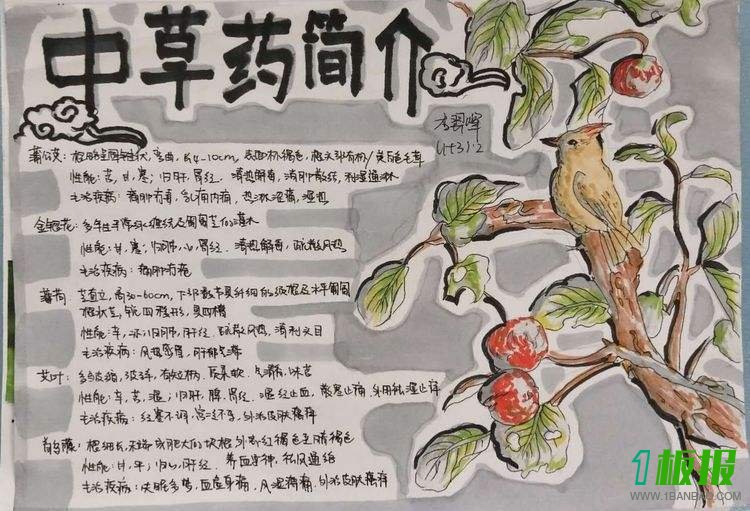 中草药简介
蒲公英：根略呈圆锥状，弯曲，长4-10cm，表面棕褐色，根头部有棕/黄白色毛茸
性能：苦，甘，寒，归肝，胃经．清热解毒，消肿散结，利湿通淋
主治疾病：痈肿疔毒，乳痈内痈，热淋涩痛，湿热
金银花：多年生半常绿缠绕及匍匐茎的灌木
性能：甘，寒，归肺，心，胃经．清热解毒，疏散风热
主治疾病：痈肿疔疮
薄荷：茎直立，高30-60cm，下部数节具纤细的须根及水平匍匐
根状茎，锐四棱形，具四槽
性能：辛，凉，归肺，肝经．疏散风热，清利头目
主治疾病：风热感冒，肝郁气滞
艾叶：多皱缩，破碎，有短柄．质柔软．气清香，味苦
性能：辛，苦，温，归肝，脾，胃经．温经止血，散寒止痛，外用祛湿止痒
主治疾病：经寒不调，宫冷不孕，外治皮肤瘙痒
首乌藤：根细长，末端成肥大的块根，外表红褐色至暗褐色
性能：甘，平，归心，肝经．养血安神，祛风通络
主治疾病：失眠多梦，血虚身痛，风湿痹痛，外治皮肤瘙痒
1板报
WWW.1BANBAO.COM